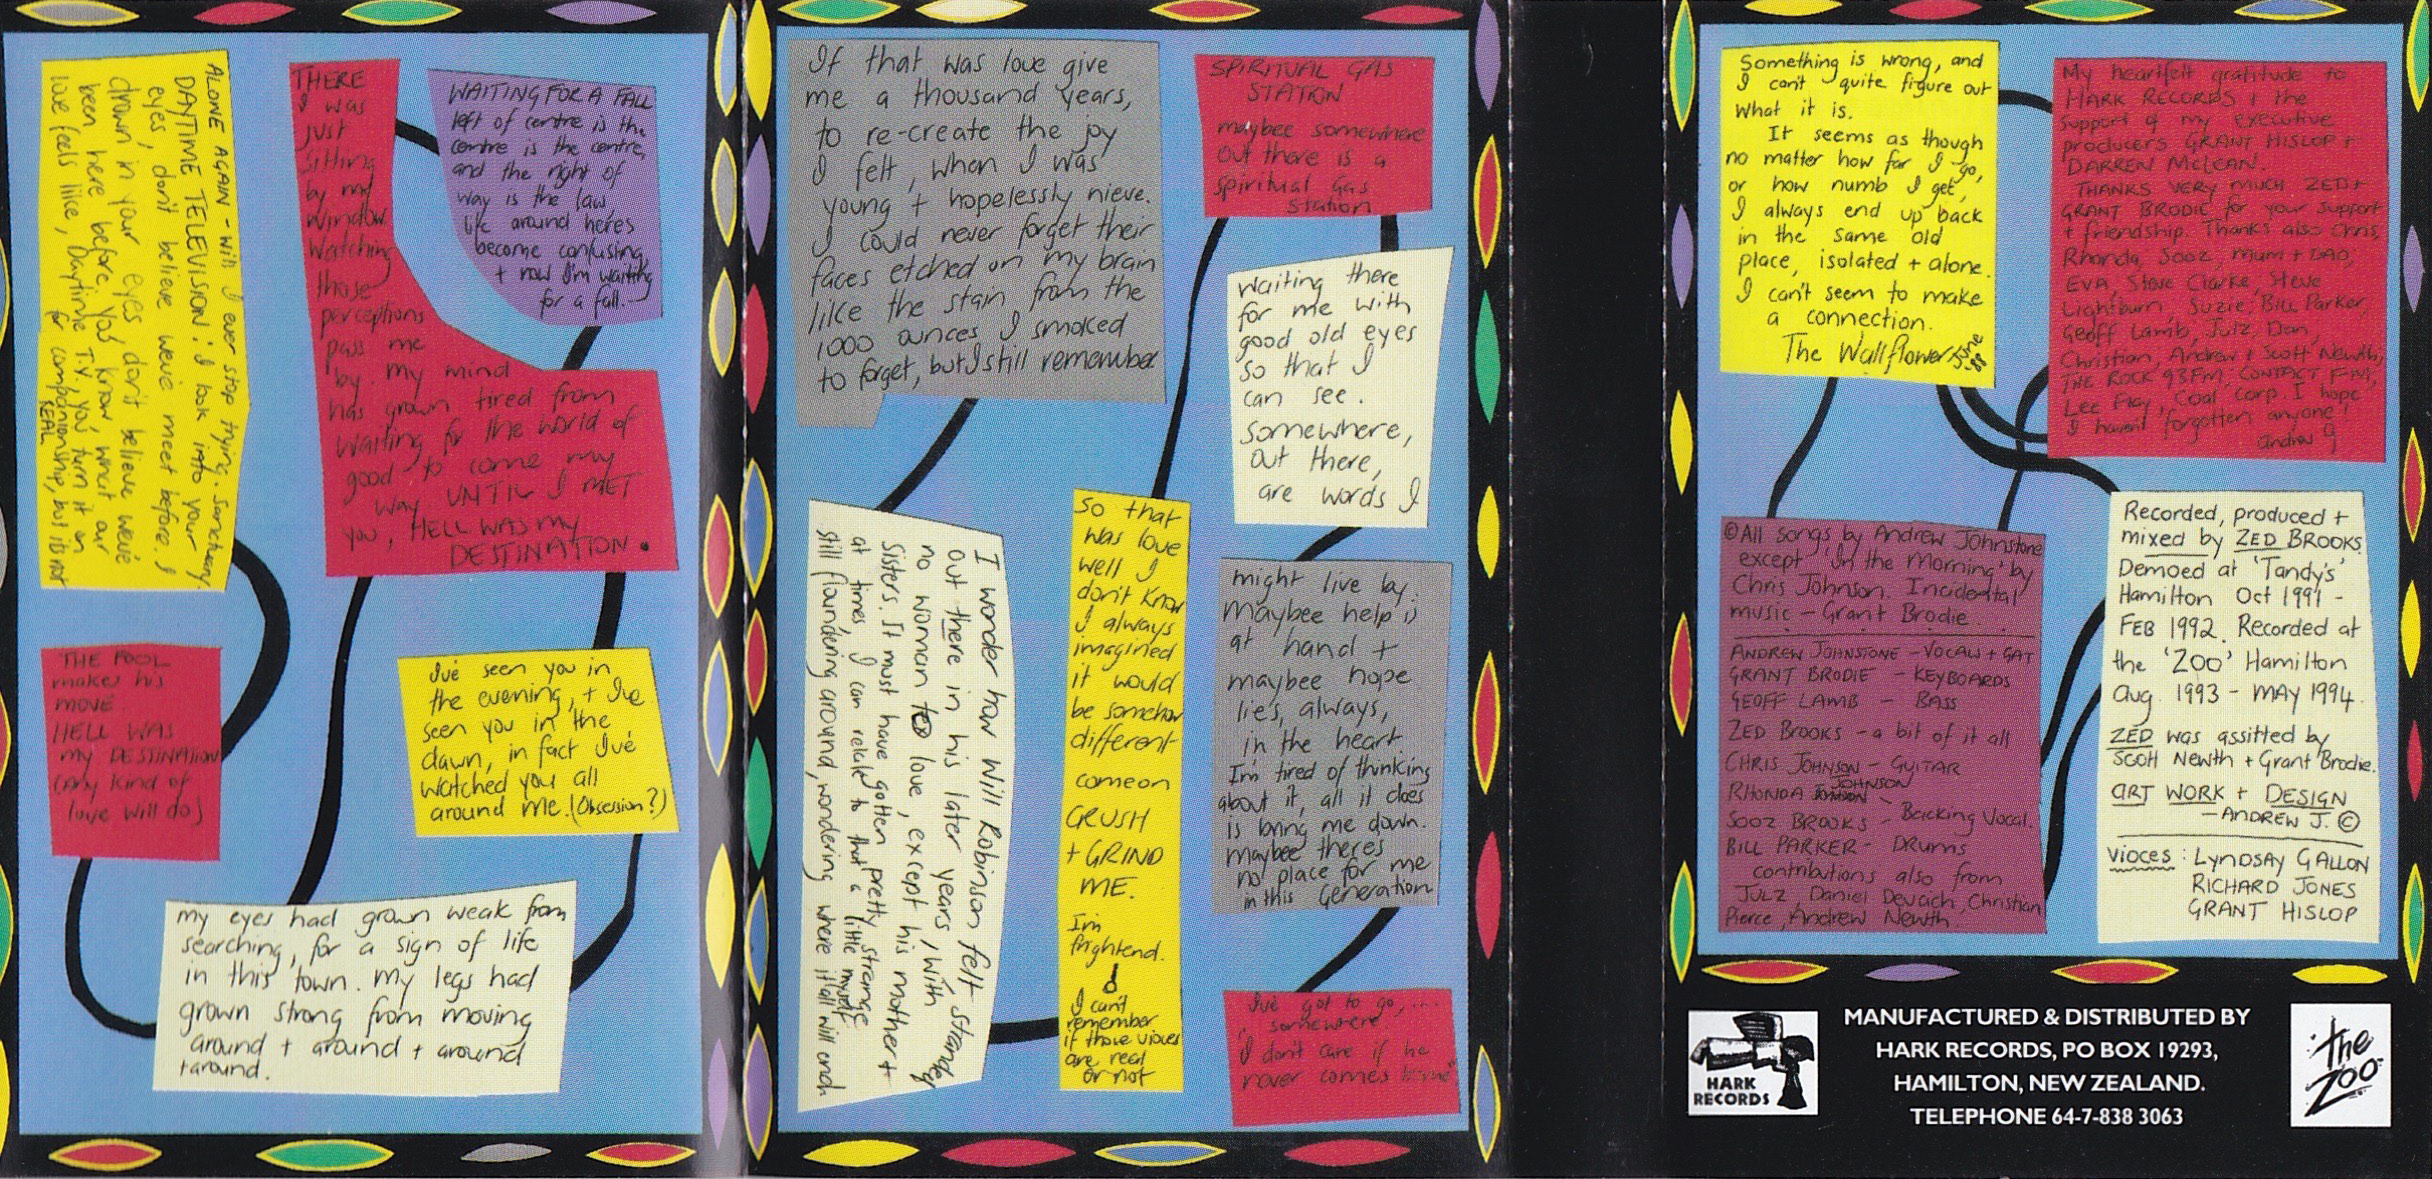 ALONE AGAIN - will I ever stop trying. Sanctuary
DAYTIME TELEVISION! I look into your
eyes, don't believe we've meet before. I
drown in your eyes don't believe we've
been here before, you know what our
love feels like, Daytime T.V. you turn it on
for companionship, but its not
REAL
THERE
I was
just
sitting
by my
window
watching
those
perceptions
pass me
by. my mind
has grown tired from
waiting for the world of
good to come my
way UNTIL I MET
you, HELL WAS my
DESTINATION.
WAITING FOR A FALL
left of centre is the
centre is the centre,
and the right of
way is the law
life around here's
become confusing
+ now I'm waiting
for a fall.
THE FOOL
makes his
move.
HELL WAS
my DESTINATION
(Any kind of
love will do)
I've seen you in
the evening, + I've
seen you in the
dawn, in fact I've
watched you all
around me. (Obsession?)
my eyes had grown weak from
searching, for a sign of life
in this town. my legs had
grown strong from moving
around + around + around
+ around.
If that was love give
me a thousand years,
to re-create the joy
I felt, when I was
young + hopelessly nieve.
I could never forget their
faces etched on my brain
like the stain from the
1000 ounces I smoked
to forget, but I still remember
I wonder how Will Robinson felt stranded
out there in his later years, with
no woman to love, except his mother +
sisters. It must have gotten pretty strange
at times, I can relate to that a little myself
still floundering around, wondering where it all will end
SPIRITUAL GAS
STATION
maybee somewhere
out there is a
spiritual Gas
station
waiting there
for me with
good old eyes
so that I
can see.
somewhere,
out there,
are words I
so that
was love
well I
don't know
I always
imagined
it would
be somehow
different
come on
CRUSH
+ GRIND
ME.
I'm
frightend.
I can't
remember
if those vioces
are real
or not
might live by.
Maybee help is
at hand +
maybee hope
lies, always,
in the heart
I'm tired of thinking
about it, all it does
is bring me down.
maybee theres
no place for me
in this Generation
I've got to go,....
"somewhere"
"I don't care if he
never comes home"
Something is wrong, and
I can't quite figure out
what it is.
It seems as though
no matter how far I go,
or how numb I get,
I always end up back
in the same old
place, isolated + alone.
I can't seem to make
a connection.
The Wallflower June 88
My heartfelt gratitude to
HARK RECORDS & the
support of my executive
producers GRANT HISLOP +
DARREN McLEAN.
THANKS VERY MUCH ZED +
GRANT BRODIE for your support
+ friendship. Thanks also Chris,
Rhonda, Sooz, mum + DAD,
EVA, Steve Clarke, Steve
Lightburn, Suzie, Bill Parker,
Geoff Lamb, Julz, Dan,
Christian, Andrew + Scott Newth,
THE ROCK 93FM, CONTACT F.M,
Lee Fley, Coal Corp. I hope
I haven't forgotten anyone!
andrew J
©All songs by Andrew Johnstone
except 'In the Morning' by
Chris Johnson. Incidental
music - Grant Brodie.
ANDREW JOHNSTONE - VOCALS + GAT
GRANT BRODIE - KEYBOARDS
GEOFF LAMB - BASS
ZED BROOKS - a bit of it all
CHRIS JOHNSON - GUITAR
RHONDA JOHNSON -
SOOZ BROOKS - Backing Vocal.
BILL PARKER - DRUMS
contributions also from
JULZ, Daniel Devcich, Christian
Pierce, Andrew Newth.
Recorded, produced +
mixed by ZED BROOKS
Demoed at 'Tandy's'
Hamilton Oct 1991 -
FEB 1992. Recorded at
the 'ZOO' Hamilton
aug. 1993 - MAY 1994.
ZED was assitted by
Scott Newth + Grant Brodie.
ART WORK + DESIGN
- ANDREW J. ©
vioces : LYNDSAY GALLON
RICHARD JONES
GRANT HISLOP
HARK
RECORDS
MANUFACTURED & DISTRIBUTED BY
HARK RECORDS, PO BOX 19293,
HAMILTON, NEW ZEALAND.
TELEPHONE 64-7-838 3063
the
ZOO